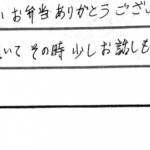 お弁当ありがとうござい
いて その時 少しお話しも